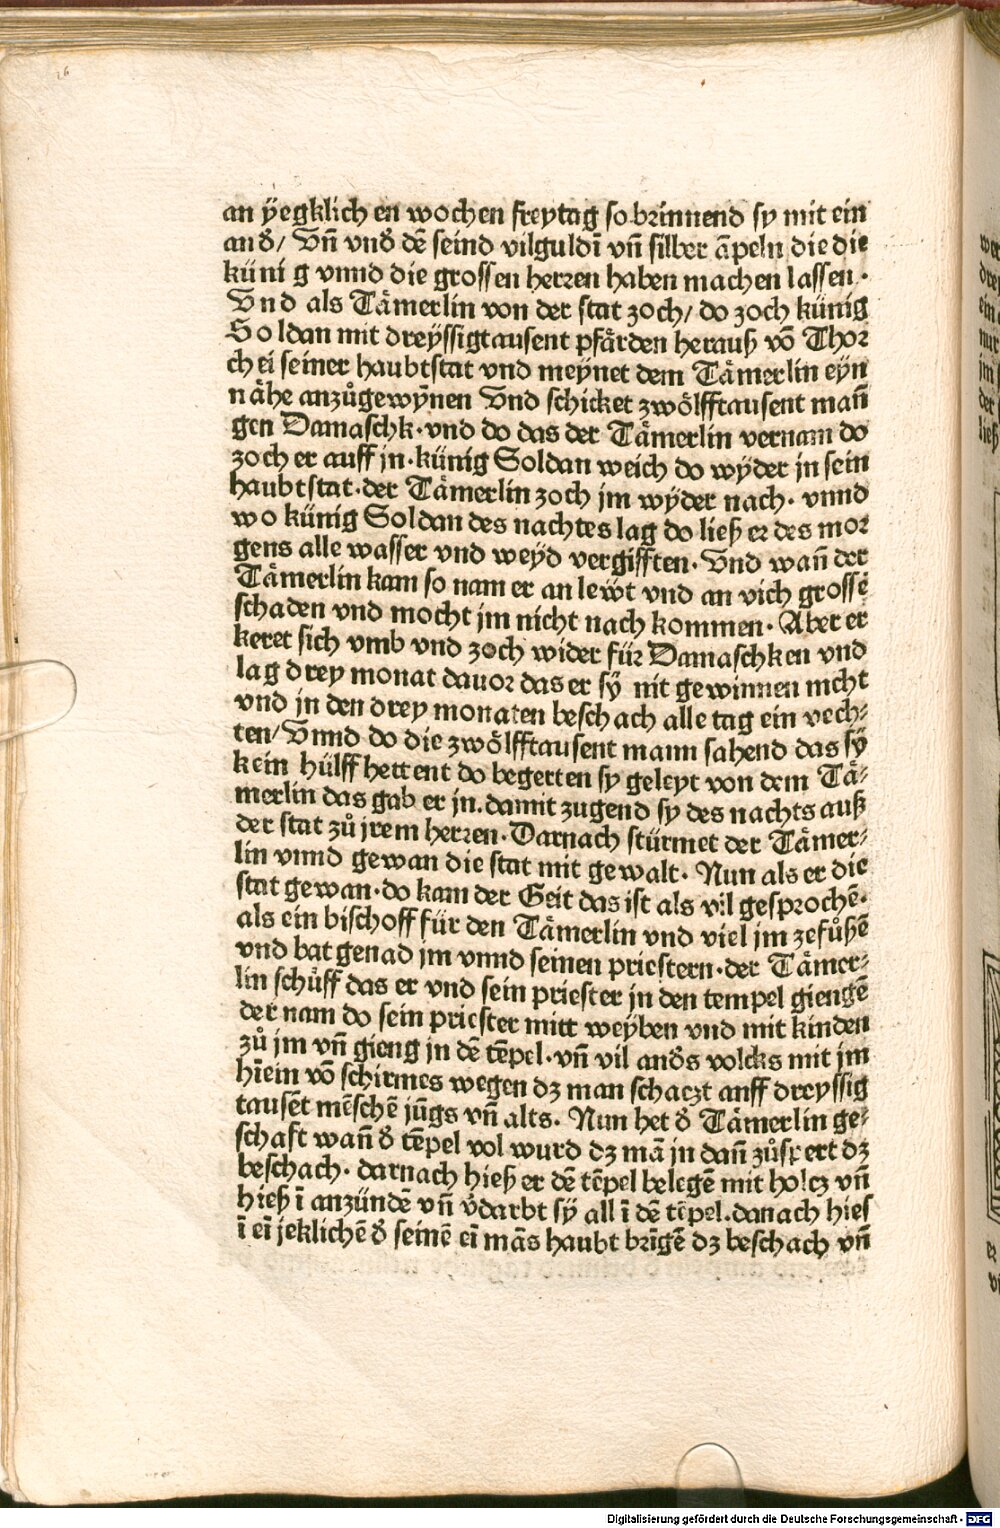 26
an ÿegklich en wochen freytag so brinnend sy mit ein
and̄/ Vñ vnd̄ dē seind vilguldī vñ silber āpeln die die
küni g vnnd die grossen herzen haben machen lassen.
Vnd als Tämerlin von der stat zoch/ do zoch künig
Soldan mit dreyssigtausent pfärden herauß võ Thor
chei seiner haubtstat vnd meynet dem Tämerlin eyn
nähe anzůgewÿnen Vnd schicket zwölfftausent mañ
gen Damaschk. vnd do das der Tämerlin vernam do
zoch er auff jn. künig Soldan weich do wÿder jn sein
haubtstat. der Tämerlin zoch jm wÿder nach. vnnd
wo künig Soldan des nachtes lag do ließ er des mor
gens alle wasser vnd weyd vergifften. Vnd wañ der
Tämerlin kam so nam er an lewt vnd an vich grossē
schaden vnd mocht jm nicht nach kommen. Aber er
keret sich vmb vnd zoch wider für Damaschken vnd
lag drey monat dauor das er sÿ nit gewinnen mcht
vnd jn den drey monaten beschach alle tag ein vech⸗
ten/ Vnnd do die zwölfftausent mann sahend das sÿ
kein hülff hettent do begerten sy geleyt von dem Tä⸗
merlin das gab er jn. damit zugend sy des nachts auß
der stat zů jrem herzen. Darnach stürmet der Tämer⸗
lin vnnd gewan die stat mit gewalt. Nun als er die
stat gewan. do kam der Geit das ist als vil gesprochē.
als ein bischoff für den Tämerlin vnd viel jm zefůßē
vnd bat genad jm vnnd seinen priestern. der Tämer⸗
lin schůff das er vnd sein priester jn den tempel giengē
der nam do sein priester mitt weyben vnd mit kinden
zů jm vñ gieng jn dē tēpel. vñ vil and̄s volcks mit jm
hīein võ schirmes wegen dz man schaczt auff dreyssig
tausēt mēschē jūgs vñ alts. Nun het d̄ Tämerlin ge⸗
schaft wañ d̄ tēpel vol wurd dz mā jn dañ zůspert dz
beschach. darnach hieß er dē tēpel belegē mit holcz vñ
hieß ī anzündē vñ v̄darbt sÿ all ī dē tēpel. danach hies
ī eī jeklichē d̄ seinē eī mās haubt brīgē dz beschach vñ
Digitalisierung gefördert durch die Deutsche Forschungsgemeinschaft - DFG